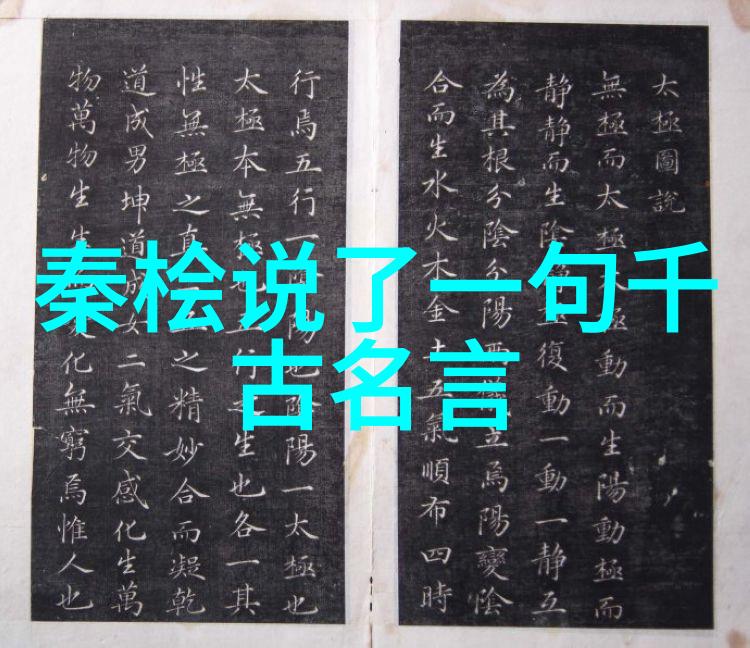 秦桧说了一句千
古名言
太極圖說
無極而太極太極動而生陽動極而
静静而生陰復動一動一静互
為其根分陰分陽兩儀立焉陽變陰
合而生水火木金土五氣順布四時
行焉五行一陰陽也陰陽一太極也
太極本無極也五行之生也各一其
性無極之真之精妙合而凝乾
道成男坤道成女二氣交感化生萬
物萬物生生化無窮焉惟人也